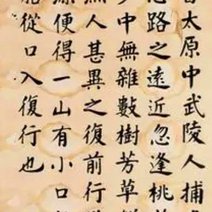 晉太原中武陵人捕
忘路之遠近忽逢桃
步中無雜數樹芳草
漁人甚異之復前行
源便得一山有小口
船從口入復行也